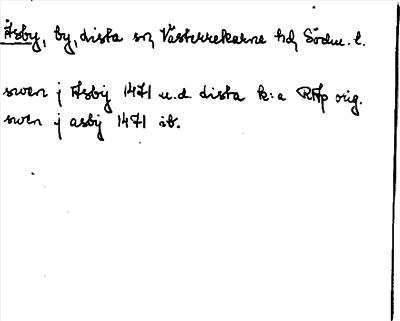 Åsby, by, dista sn, Västerrekarne hd, Södm. l.
swen j Asbij 1471 u.d. dista k:a RAp orig.
swen j asbij 1471 ib.